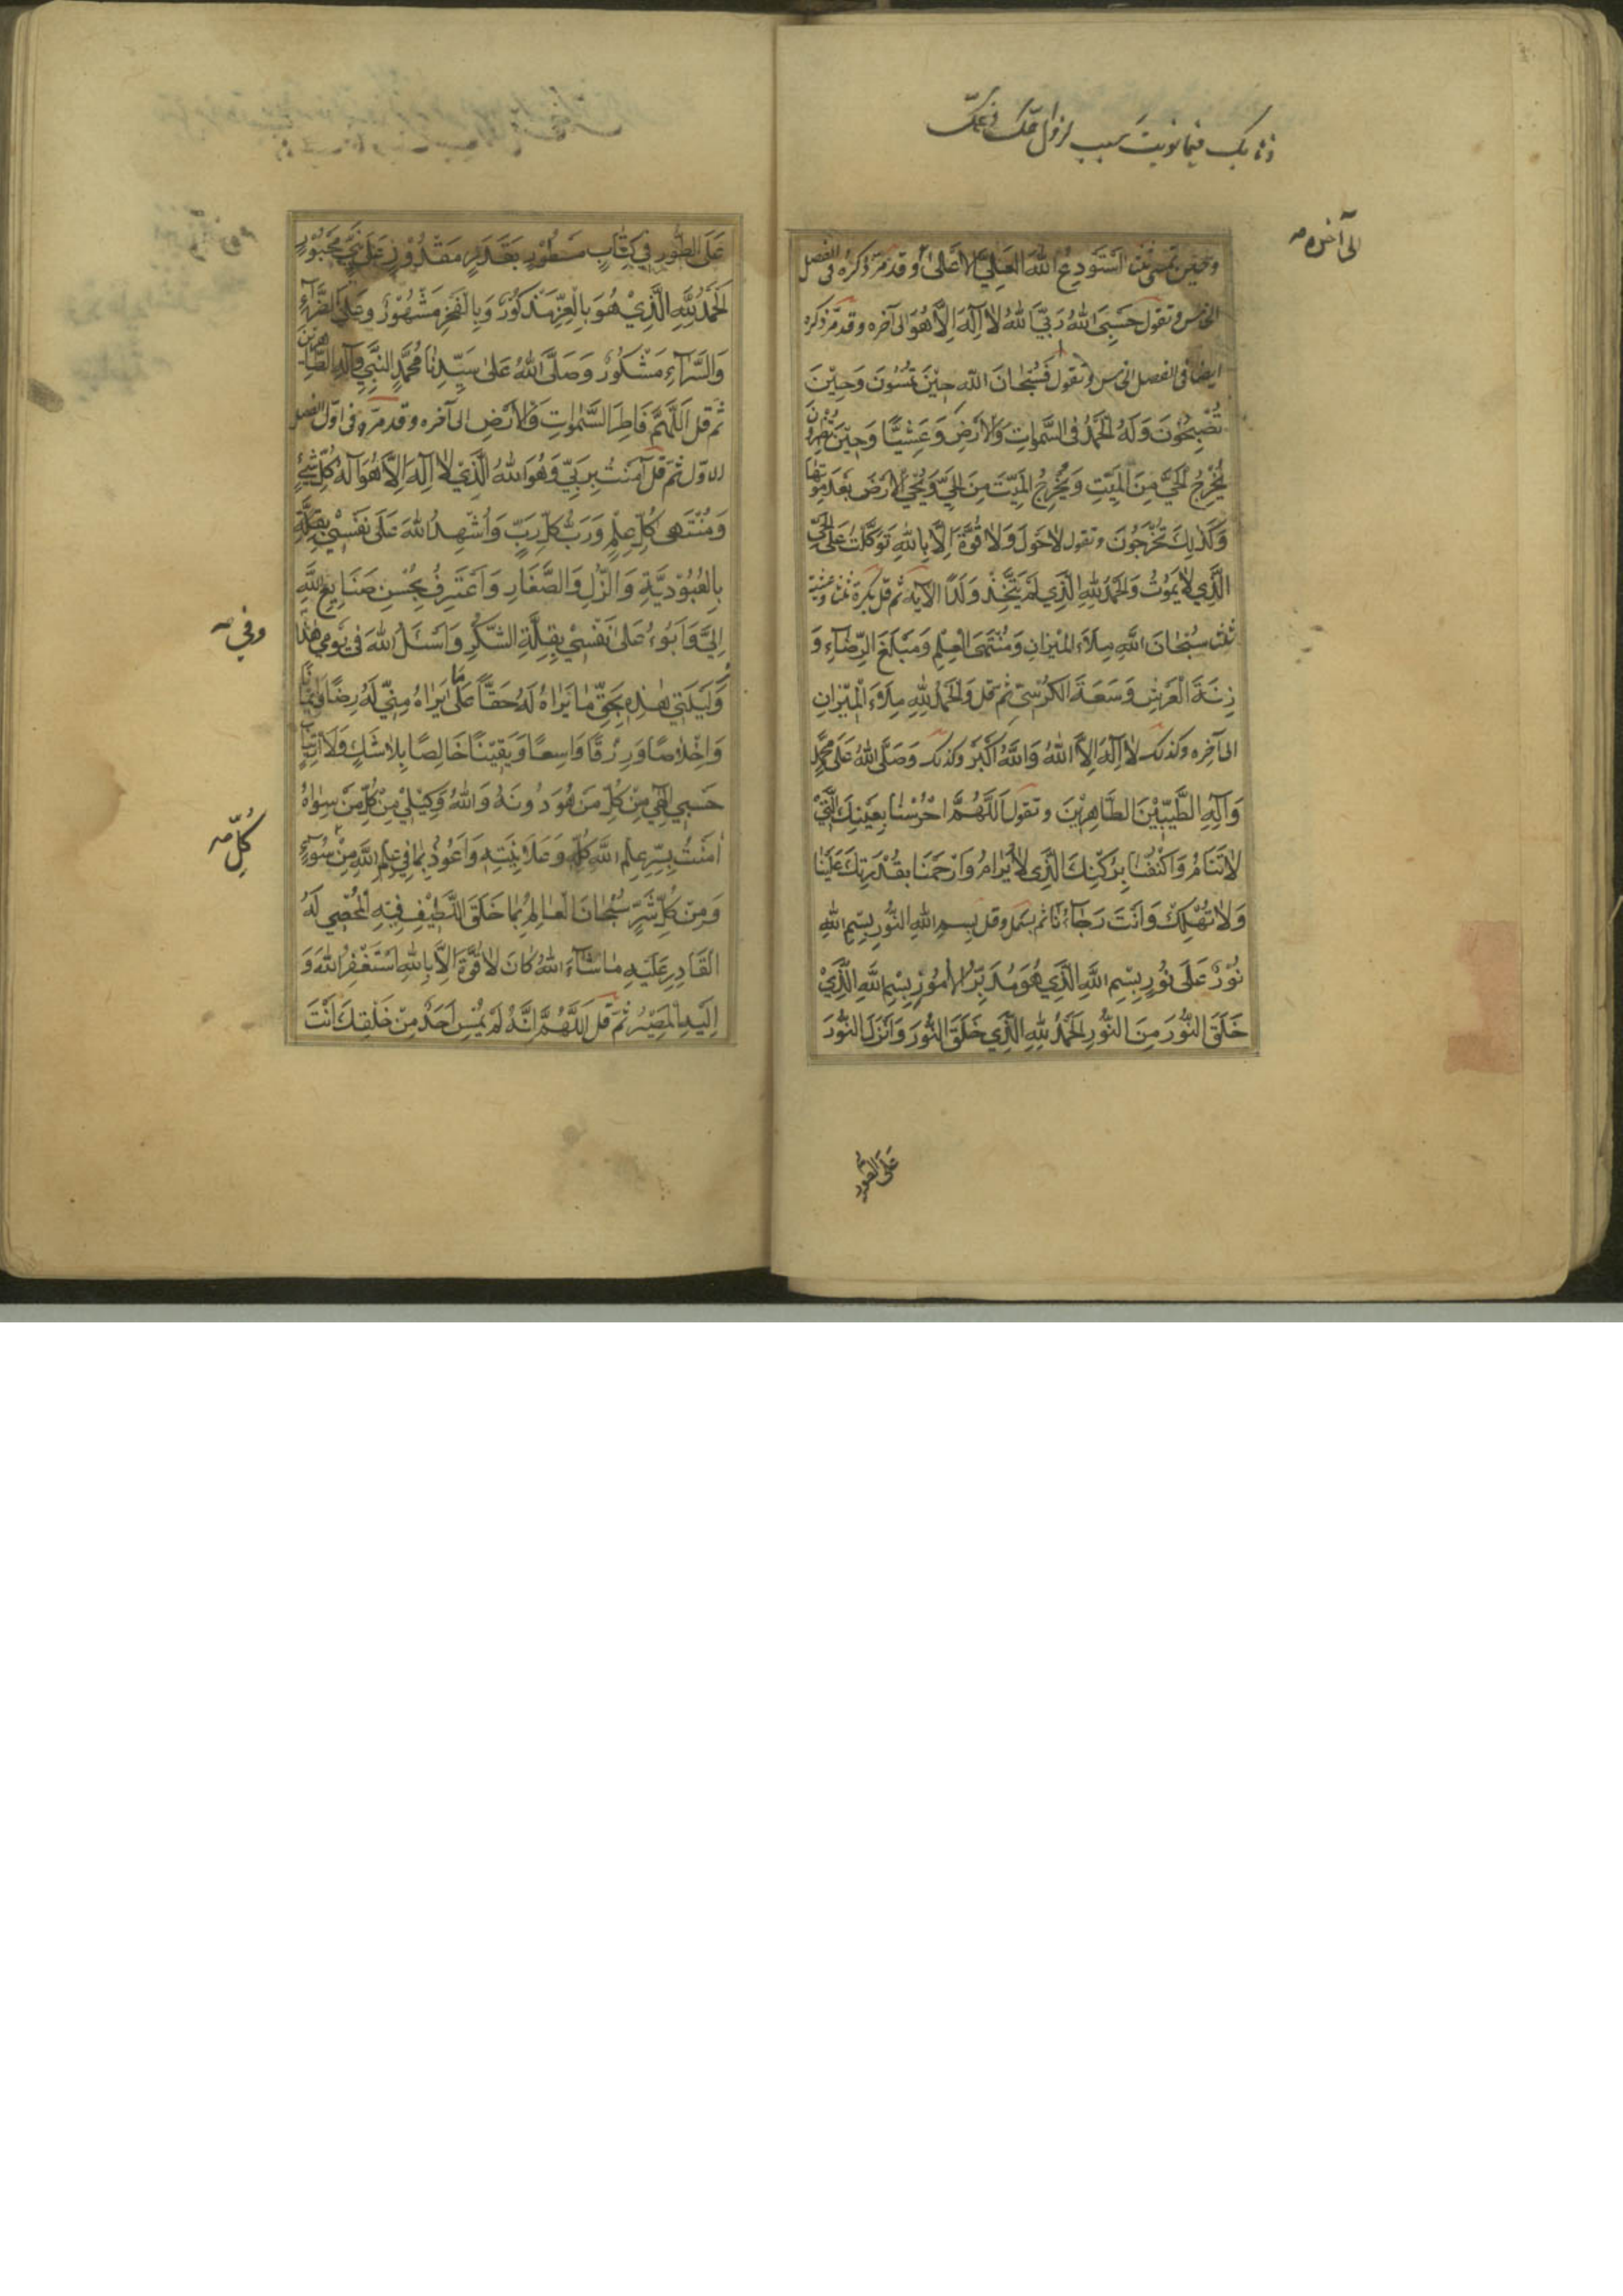 فيما نويت بسبب
الى آخره صه
وحين تمسى ثلثا استودع الله العلي الاعلى وقد مرّ ذكره فى الفصل
الخامس وتقول حَسْبِيَ اللهُ رَبِّيَ اللهُ لا اِلٰهَ اِلاَّ هُوَ الى آخره وقد مرّ ذكره
ايضا فى الفصل الخامس وتقول فَسُبْحَانَ اللهِ حِيْنَ تُمْسُونَ وَحِيْنَ
تُصْبِحُونَ وَلَهُ الْحَمْدُ فى السَّمٰوَاتِ وَالاَرْضِ وَعَشِيًّا وَحِيْنَ تُظْهِرُونَ
يُخْرِجُ الْحَيَّ مِنَ الْمَيِّتِ وَيُخْرِجُ الْمَيِّتَ مِنَ الْحَيِّ وَيُحْيِي الاَرْضَ بَعْدَ مَوْتِهَا
وَكَذٰلِكَ تُخْرَجُونَ وتقول لاحَوْلَ وَلا قُوَّةَ اِلاَّ بِاللهِ تَوَكَّلْتُ عَلَى الْحَيِّ
الَّذِي لا يَمُوتُ وَالْحَمْدُ لِلّهِ الَّذِي لَمْ يَتَّخِذْ وَلَدًا الآية ثم قل بكرة ثلثا وعشية
ثلثا سُبْحَانَ اللهِ مِلاَءَ الْمِيْزَانِ وَمُنْتَهَى الْعِلْمِ وَمَبْلَغَ الرِّضَاءِ وَ
زِنَةَ الْعَرْشِ وَسَعَةَ الْكُرْسِيِّ ثم قل وَالْحَمْدُ لِلّهِ مِلاَءَ الْمِيْزَانِ
الى آخره وكذلك لا اِلٰهَ اِلاَّ اللهُ وَاللهُ اَكْبَرُ وكذلك وَصَلَّى اللهُ عَلَى مُحَمَّدٍ
وَآلِهِ الطَّيِّبِيْنَ الطَّاهِرِيْنَ وتقول اَللّهُمَّ احْرُسْنَا بِعَيْنِكَ الَّتِيْ
لا تَنَامُ وَاكْنُفْنَا بِرُكْنِكَ الَّذِي لا يُرَامُ وَارْحَمْنَا بِقُدْرَتِكَ عَلَيْنَا
وَلا تُهْلِكْنَا وَاَنْتَ رَجَاؤُنَا ثم بسمل وقل بِسْمِ اللهِ النُّوْرِ بِسْمِ اللهِ
نُوْرٌ عَلَى نُوْرٍ بِسْمِ اللهِ الَّذِي هُوَ مُدَبِّرُ الاُمُوْرِ بِسْمِ اللهِ الَّذِيْ
خَلَقَ النُّوْرَ مِنَ النُّوْرِ اَلْحَمْدُ لِلّهِ الَّذِي خَلَقَ النُّوْرَ وَاَنْزَلَ النُّوْرَ
عَلَى الطور
عَلَى الطُّوْرِ فِي كِتَابٍ مَسْطُوْرٍ بِقَدَرٍ مَقْدُوْرٍ عَلَى نَبِيٍّ مَحْبُوْرٍ
اَلْحَمْدُ لِلّهِ الَّذِيْ هُوَ بِالْعِزِّ مَذْكُوْرٌ وَبِالْفَخْرِ مَشْهُوْرٌ وَعَلَى الضَّرَّآءِ
وَالسَّرَّآءِ مَشْكُوْرٌ وَصَلَّى اللهُ عَلٰى سَيِّدِنَا مُحَمَّدٍ النَّبِيِّ وَآلِهِ الطَّاهِرِيْنَ
ثم قل اَللّهُمَّ فَاطِرَ السَّمٰوَاتِ وَالاَرْضِ الى آخره وقد مرّ فى اوّل الفصل
الاول ثم قل آمَنْتُ بِرَبِّي وَهُوَ اللهُ الَّذِيْ لا اِلٰهَ اِلاَّ هُوَ اِلٰهُ كُلِّ شَيْءٍ
وَمُنْتَهٰى كُلِّ عِلْمٍ وَرَبُّ كُلِّ رَبٍّ وَاُشْهِدُ اللهَ عَلَى نَفْسِيْ
بِالْعُبُوْدِيَّةِ وَالذُّلِّ وَالصَّغَارِ وَاَعْتَرِفُ بِحُسْنِ صَنَايِعِ اللهِ
اِلَيَّ وَاَبُوْءُ عَلٰى نَفْسِيْ بِقِلَّةِ الشُّكْرِ وَاَسْئَلُ اللهَ فِي يَوْمِي هٰذَا
وفي صه
وَلَيْلَتِيْ هٰذِهِ بِحَقِّ مَا يَرَاهُ لَهُ حَقًّا عَلٰى مَا يَرَاهُ مِنِّيْ لَهُ رِضًا وَاِيْمَانًا
وَاِخْلاصًا وَرِزْقًا وَاسِعًا وَيَقِيْنًا خَالِصًا بِلا شَكٍّ وَلا ارْتِيَابٍ
حَسْبِيْ اِلٰهِي مِنْ كُلِّ مَنْ هُوَ دُوْنَهُ وَاللهُ وَكِيْلِيْ مِنْ كُلِّ مَنْ سِوَاهُ
آمَنْتُ بِسِرِّ عِلْمِ اللهِ كُلِّهِ وَعَلاَنِيَتِهِ وَاَعُوْذُ بِمَا فِي عِلْمِ اللهِ مِنْ سُوْءٍ
كُلِّ صه
وَمِنْ كُلِّ شَرٍّ سُبْحَانَ الْعَالِمِ بِمَا خَلَقَ اللَّطِيْفِ فِيْهِ الْمُحْصِي لَهُ
الْقَادِرِ عَلَيْهِ مَا شَآءَ اللهُ كَانَ لا قُوَّةَ اِلاَّ بِاللهِ اَسْتَغْفِرُ اللهَ وَ
اِلَيْهِ الْمَصِيْرُ ثم قل اَللّهُمَّ اِنَّهُ لَمْ يُمْسِ اَحَدٌ مِنْ خَلْقِكَ اَنْتَ